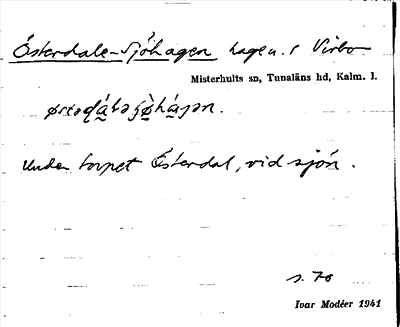 Österdals-Sjöhagen hage u. s Virbo
Misterhults sn, Tunaläns hd, Kalm. l.
Under torpet Österdal, vid sjön.
s. 70
Ivar Modéer 1941